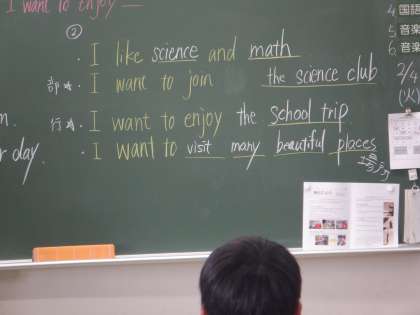 I want to enjoy
②
・I like science and math
部活・I want to join the science club
行事・I want to enjoy the school trip
・I want to visit many beautiful places
r day.
4 国語
5 音楽
6 音楽
2/4
(火)